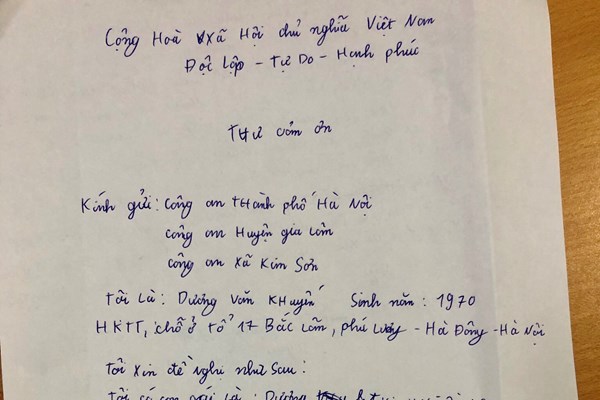 Cộng Hoà Xã Hội chủ nghĩa Việt Nam
Độc Lập - Tự Do - Hạnh phúc
Thư cảm ơn
Kính gửi: Công an thành phố Hà Nội
Công an Huyện gia Lâm
Công an Xã Kim Sơn
Tôi Là: Dương Văn Khuyến Sinh năm: 1970
HKTT, chỗ ở Tổ 17 Bắc Lãm, phú Lương - Hà Đông - Hà Nội
Tôi Xin đề nghị như Sau:
Tôi có con gái Là: Dương